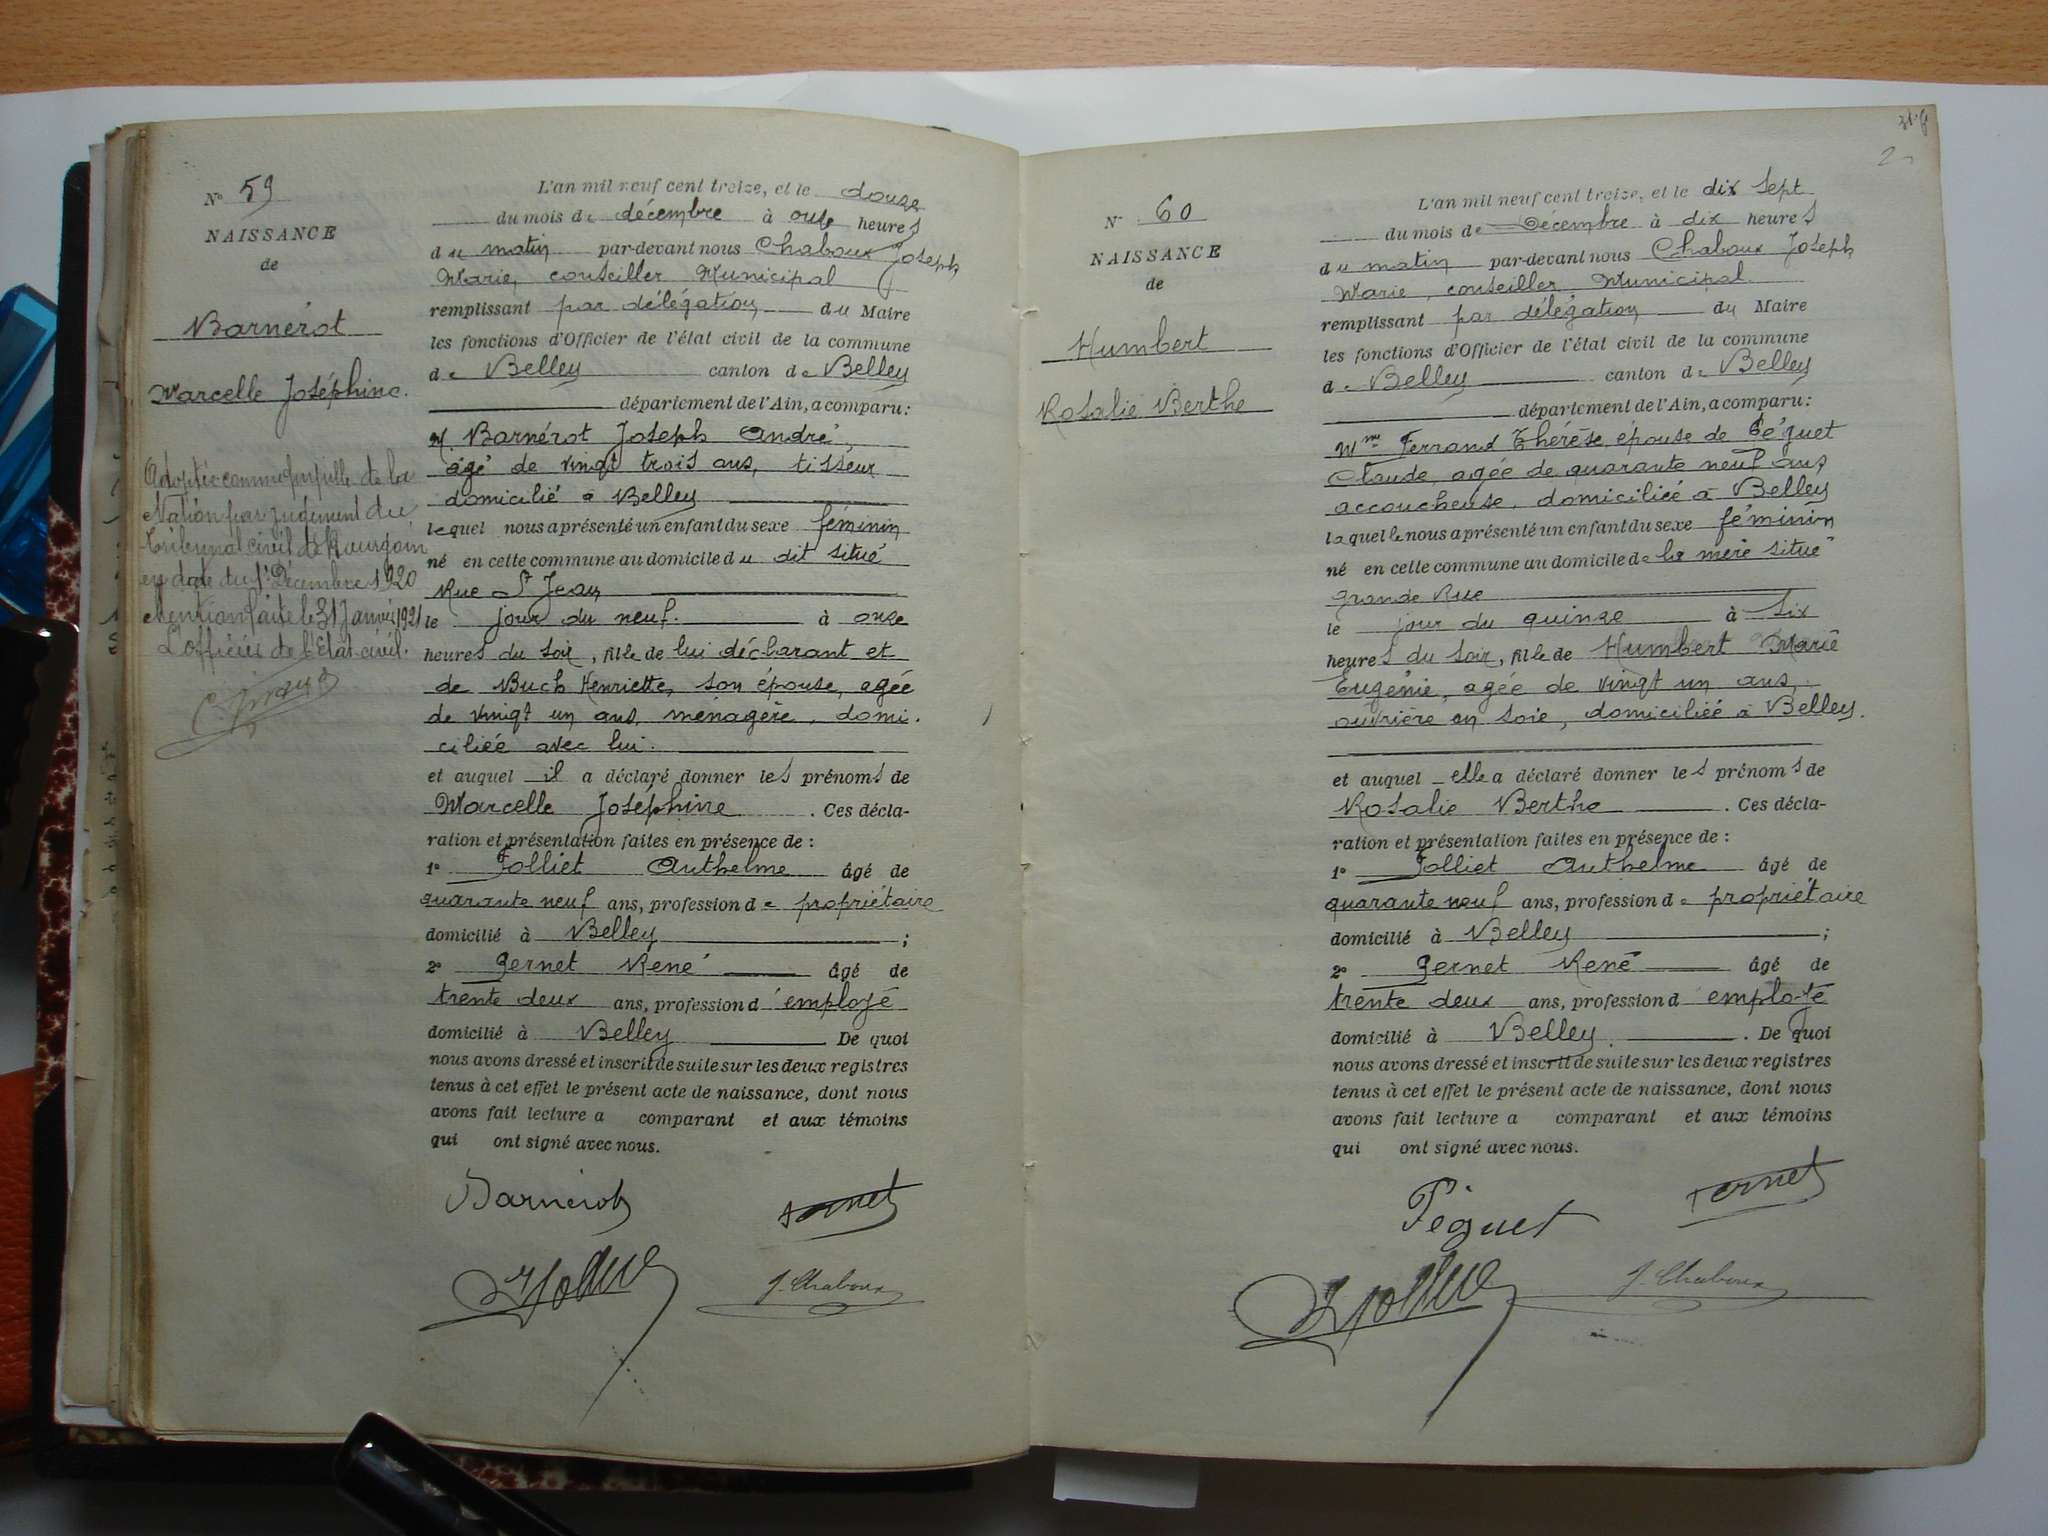 N° 59
NAISSANCE
de
Barnérot
Marcelle Joséphine.
Adoptée comme pupille de la
Nation par jugement du
tribunal civil de Bourgoin
en date du 1er Décembre 1920
Mention faite le 31 Janvier 1921
L'officier de l'Etat-civil.
L'an mil neuf cent treize, et le douze
du mois de décembre à onze heures
du matin par-devant nous Chaboux Joseph
Marie, conseiller Municipal
remplissant par délégation du Maire
les fonctions d'Officier de l'état civil de la commune
de Belley canton de Belley
département de l'Ain, a comparu:
M. Barnérot Joseph André,
âgé de vingt trois ans, tisseur
domicilié à Belley
lequel nous a présenté un enfant du sexe féminin
né en cette commune au domicile du dit situé
Rue St Jean
le jour du neuf. à onze
heures du soir, fille de lui déclarant et
de Buch Henriette, son épouse, agée
de vingt un ans, ménagère, domi-
ciliée avec lui.
et auquel il a déclaré donner les prénoms de
Marcelle Joséphine. Ces décla-
ration et présentation faites en présence de:
1° Jolliet Anthelme âgé de
quarante neuf ans, profession de propriétaire
domicilié à Belley;
2° Pernet René âgé de
trente deux ans, profession d'employé
domicilié à Belley De quoi
nous avons dressé et inscrit de suite sur les deux registres
tenus à cet effet le présent acte de naissance, dont nous
avons fait lecture a comparant et aux témoins
qui ont signé avec nous.
Barnérot Pernet
Jolliet J. Chaboux
2
N° 60
NAISSANCE
de
Humbert
Rosalie Berthe
L'an mil neuf cent treize, et le dix sept
du mois de Décembre à dix heures
du matin par-devant nous Chaboux Joseph
Marie, conseiller Municipal
remplissant par délégation du Maire
les fonctions d'Officier de l'état civil de la commune
de Belley canton de Belley
département de l'Ain, a comparu:
Mme Ferrand Thérèse épouse de Péguet
Claude, agée de quarante neuf ans
accoucheuse, domiciliée à Belley
laquelle nous a présenté un enfant du sexe féminin
né en cette commune au domicile de la mère situé
grande Rue
le jour du quinze à six
heures du soir, fille de Humbert Marie
Eugénie, agée de vingt un ans,
ouvrière en soie, domiciliée à Belley.
et auquel elle a déclaré donner les prénoms de
Rosalie Berthe. Ces décla-
ration et présentation faites en présence de:
1° Jolliet Anthelme âgé de
quarante neuf ans, profession de propriétaire
domicilié à Belley;
2° Pernet René âgé de
trente deux ans, profession d employé
domicilié à Belley. De quoi
nous avons dressé et inscrit de suite sur les deux registres
tenus à cet effet le présent acte de naissance, dont nous
avons fait lecture a comparant et aux témoins
qui ont signé avec nous.
Péguet Pernet
Jolliet J. Chaboux